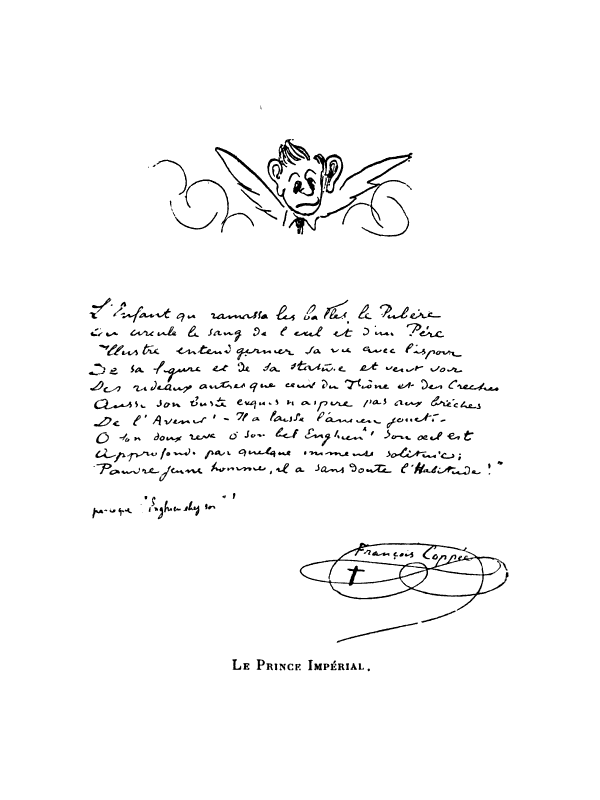 L'Enfant qui ramassa les balles, le Pubère
Où circule le sang de l'exil et d'un Père
Illustre entend germer sa vie avec l'espoir
De sa figure et de sa stature et veut voir
Des rideaux autres que ceux du Trône et des Crèches
Aussi son buste exquis n'aspire pas aux brèches
De l'Avenir! - Il a laissé l'ancien jouet. -
O son doux rêve ô son bel Enghien! Son œil est
Approfondi par quelque immense solitude;
"Pauvre jeune homme, il a sans doute l'Habitude!"
"Enghien chez soi"!
François Coppée
LE PRINCE IMPÉRIAL.